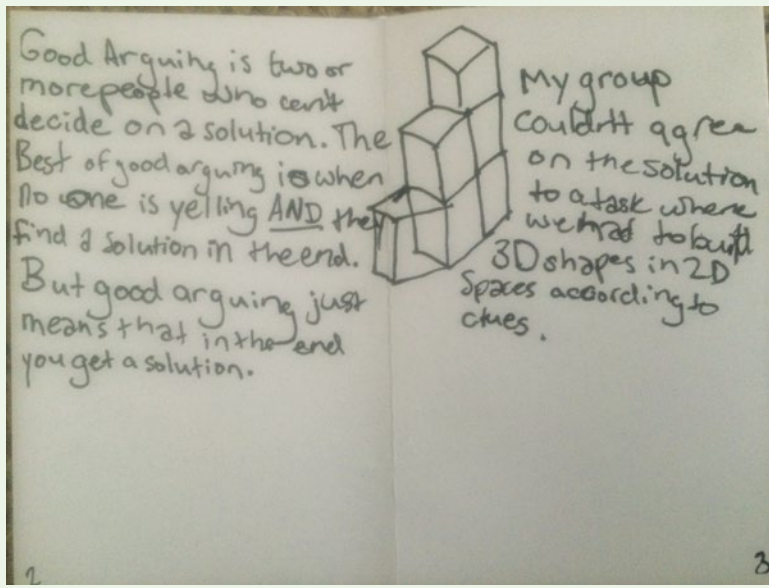 Good Arguing is two or
more people who can't
decide on a solution. The
Best of good arguing is when
no one is yelling AND they
find a solution in the end.
But good arguing just
means that in the end
you get a solution.
2
My group
couldn't agree
on the solution
to a task where
we had to build
3D shapes in 2D
Spaces according to
clues.
3